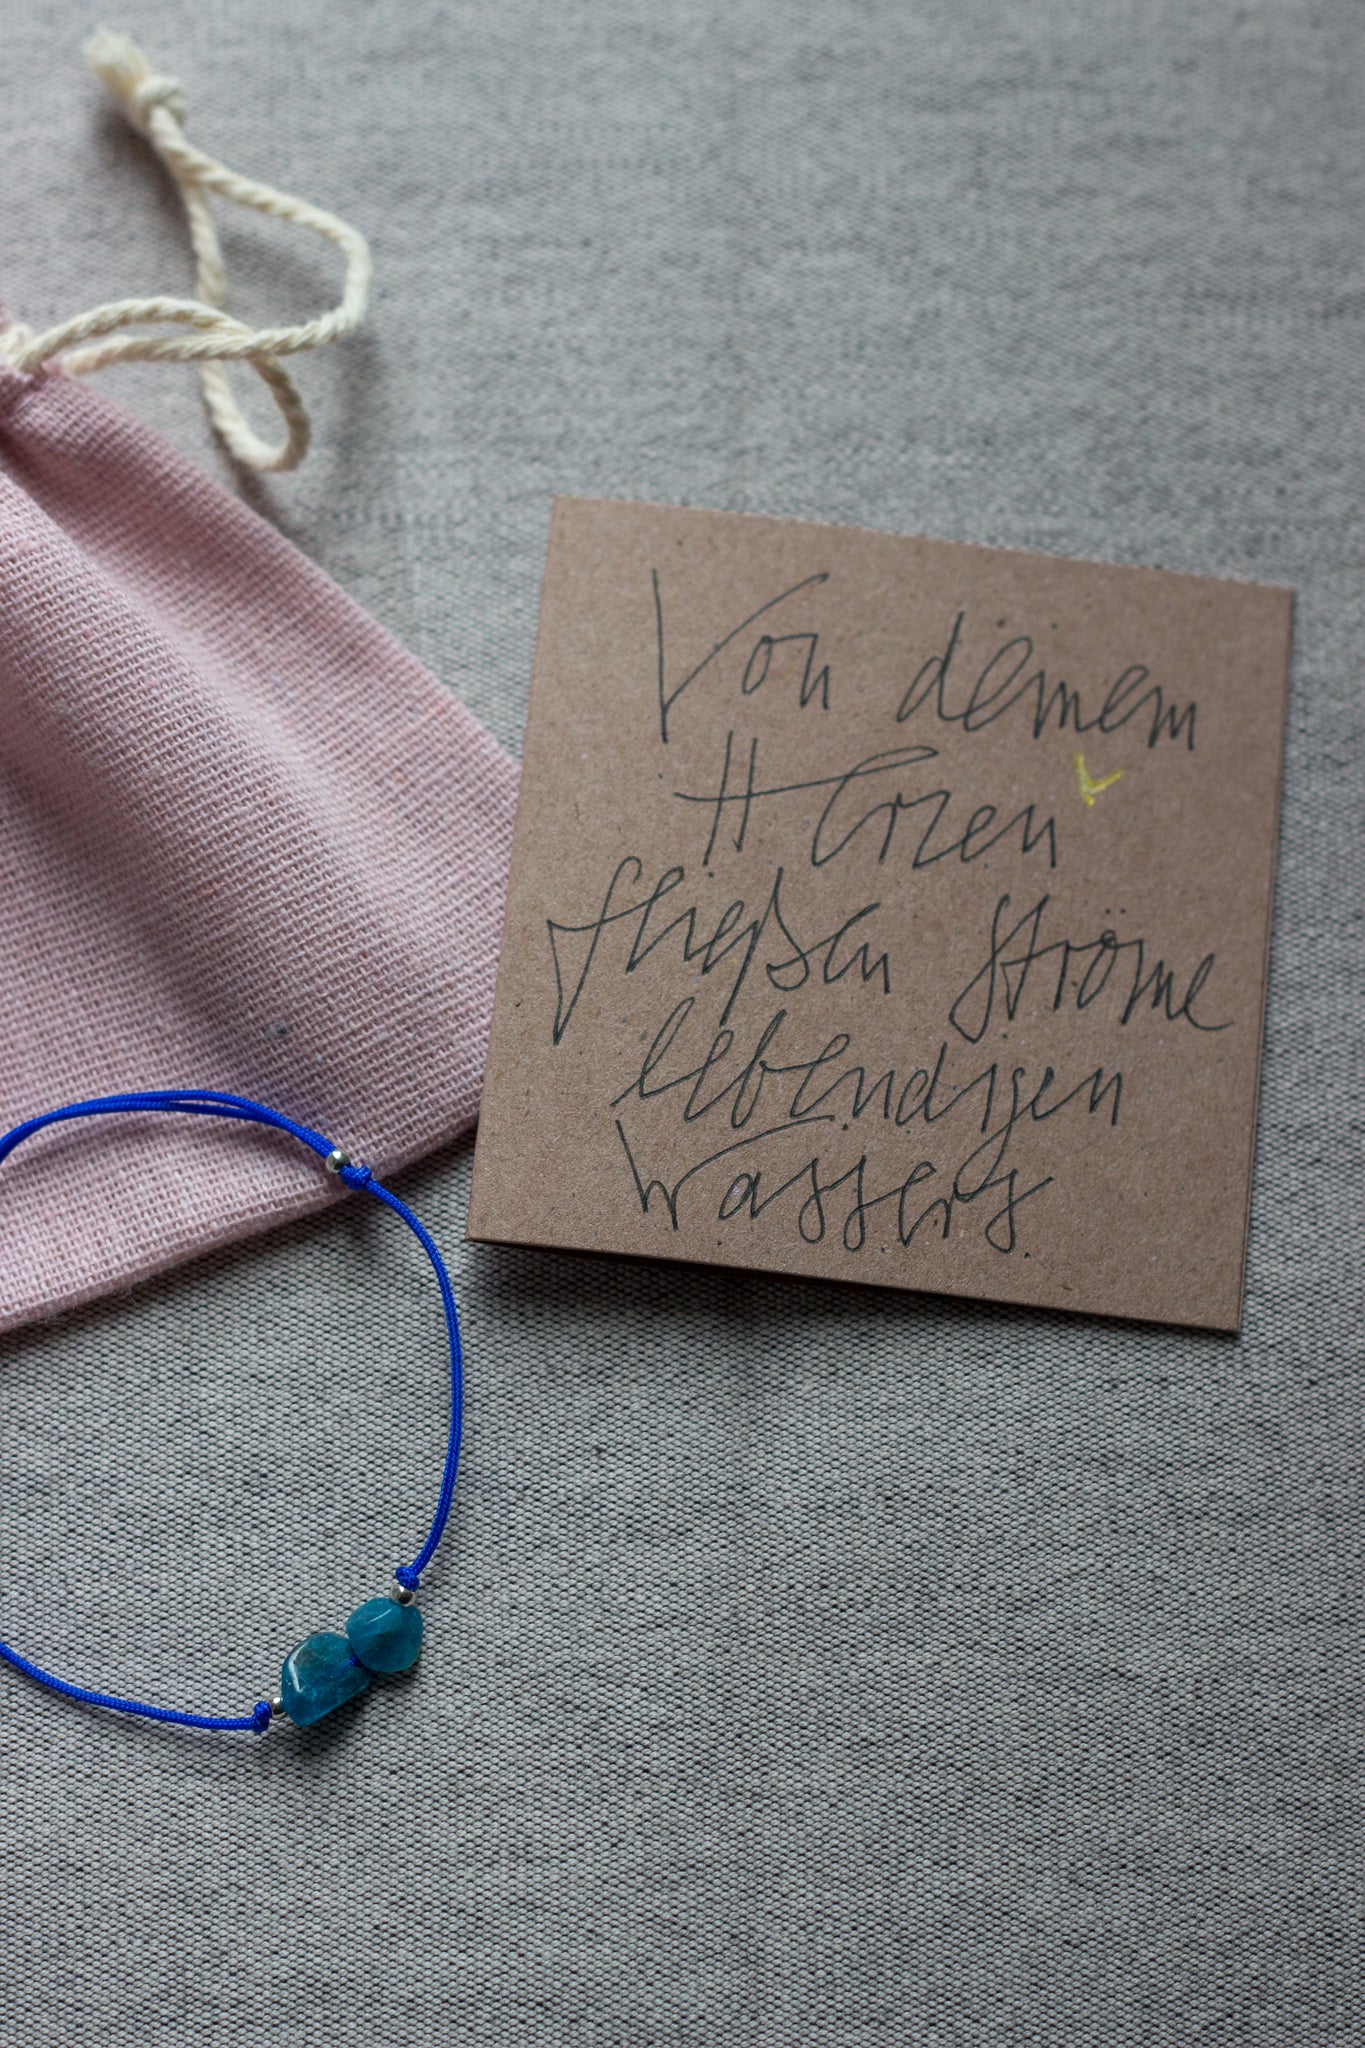 Von deinem
Herzen
fließen Ströme
lebendigen
Wassers.